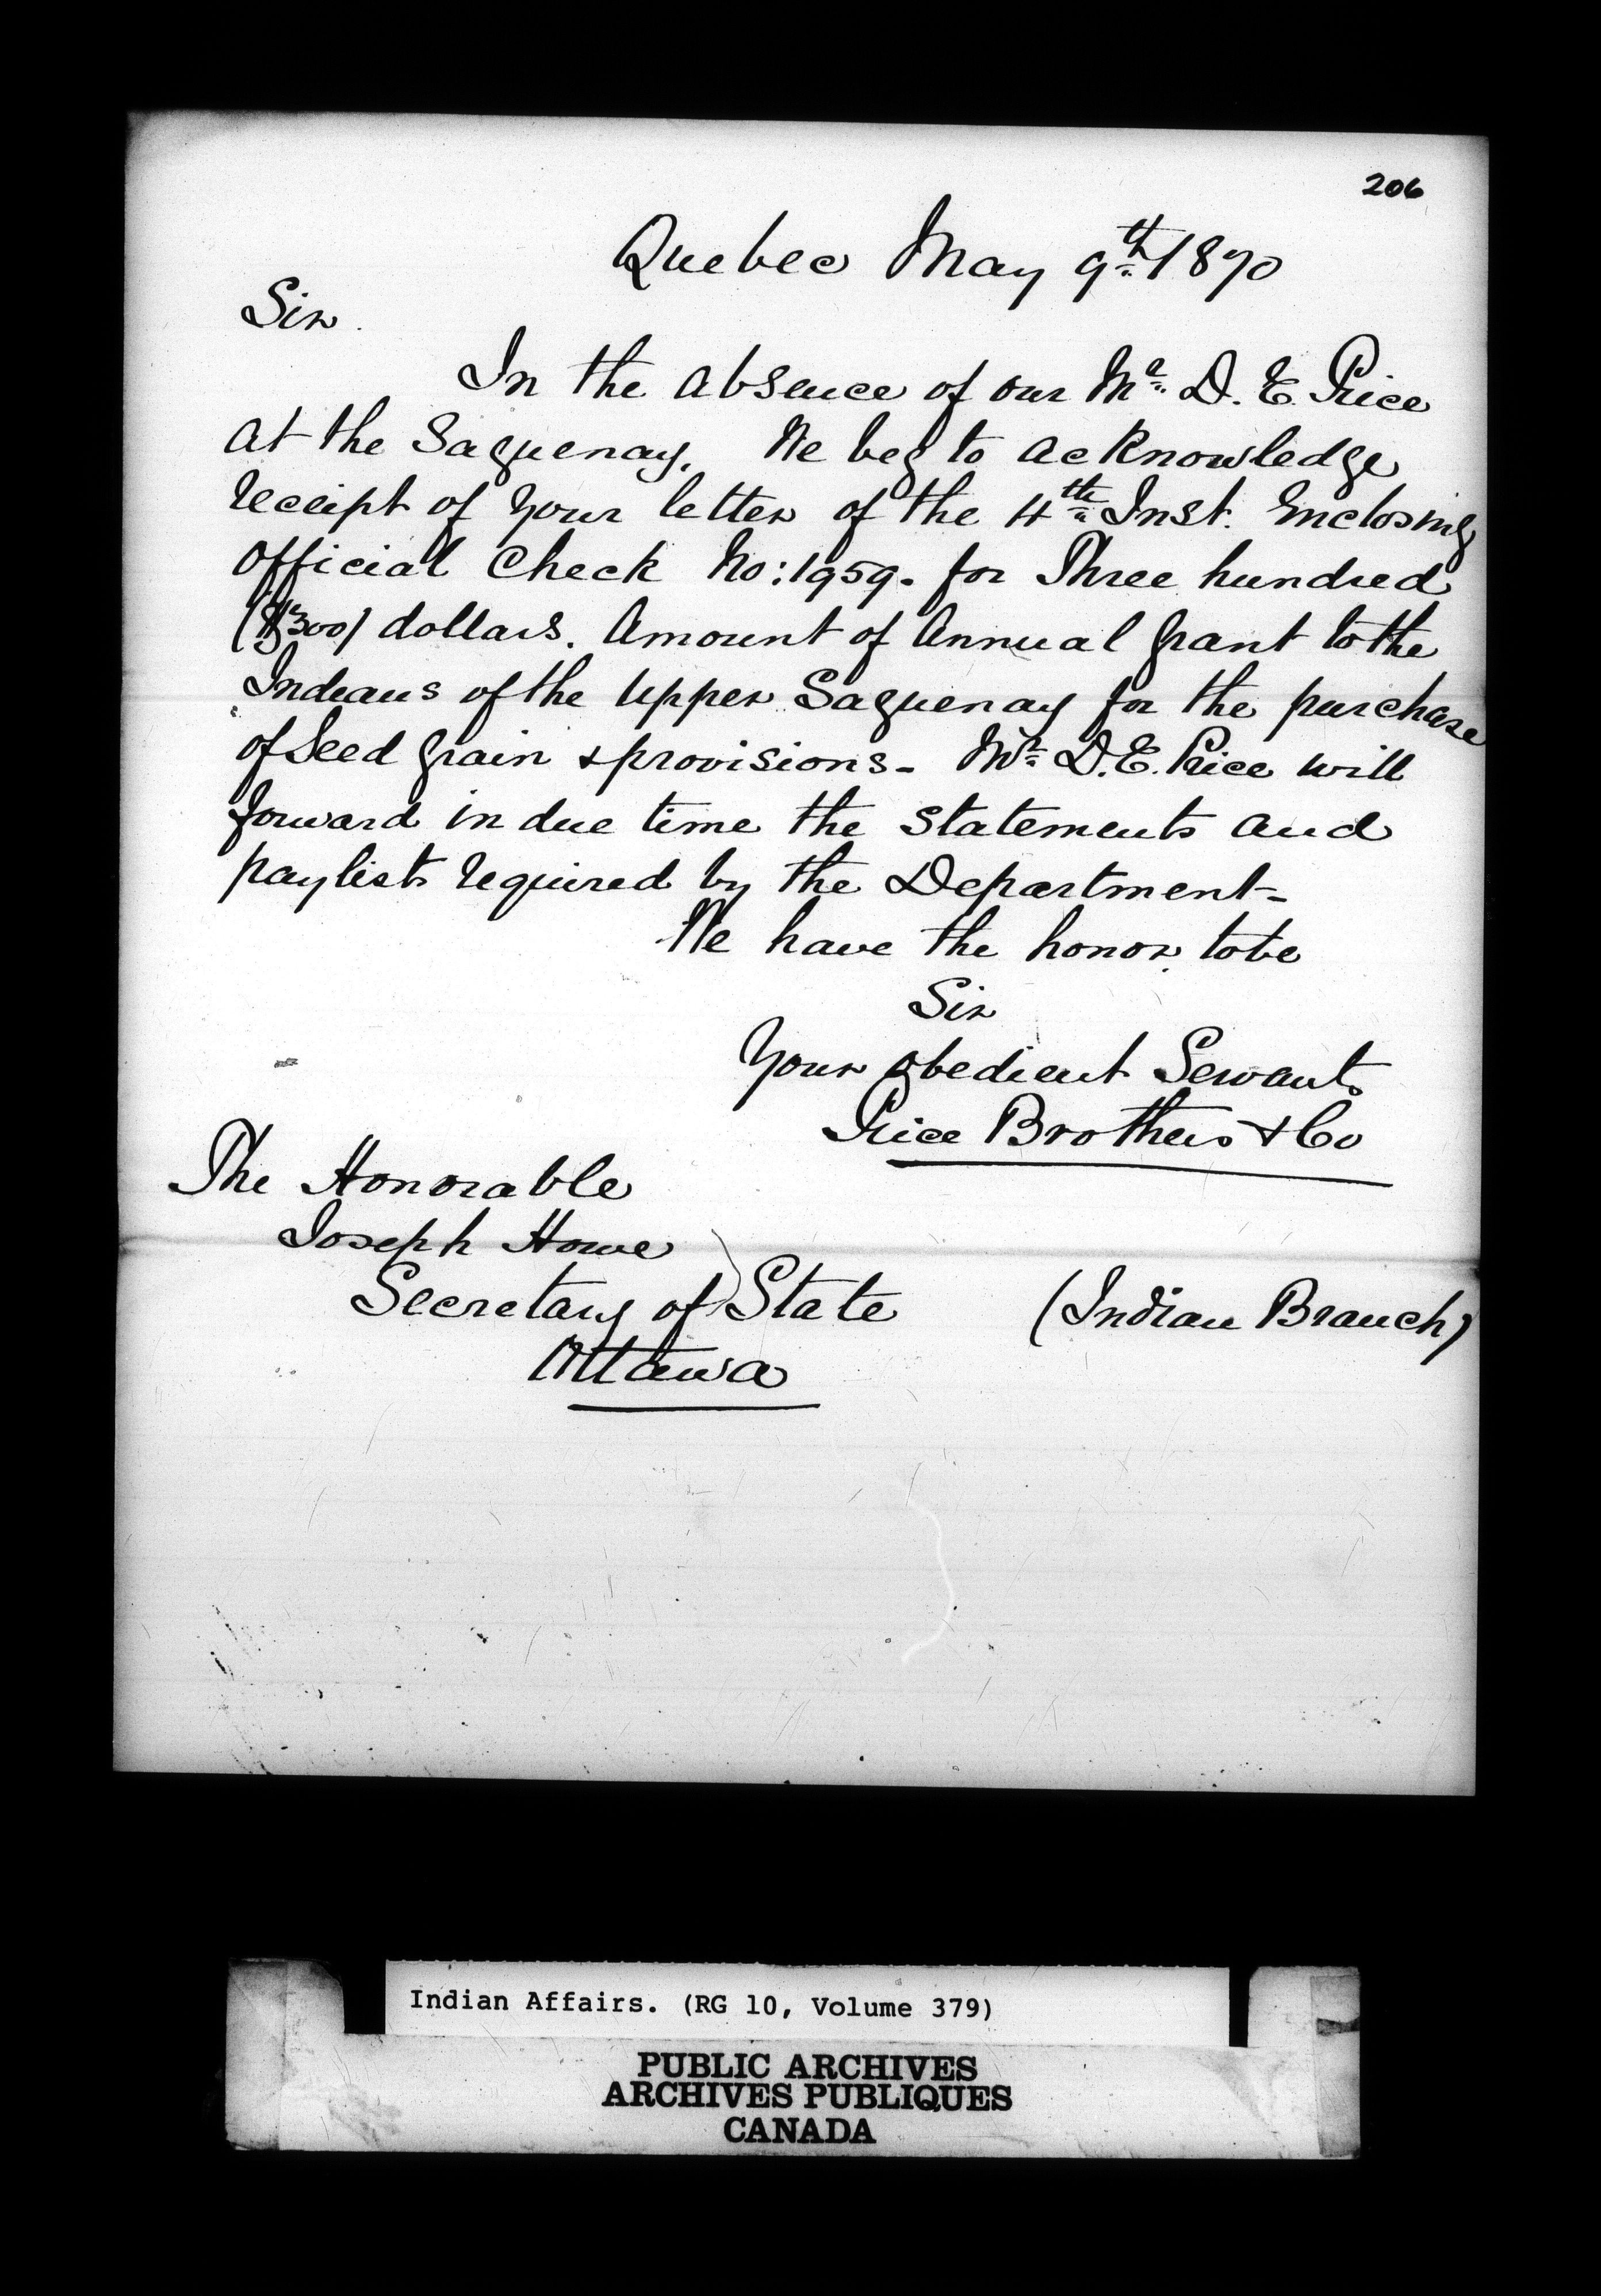 206
Quebec May 9th 1870
Sir
In the absence of our Mr. D. E. Price
at the Saguenay, We beg to acknowledge
receipt of Your letter of the 4th Inst. Enclosing
Official Check No: 1959. for Three hundred
($300) dollars. Amount of Annual Grant to the
Indians of the Upper Saguenay for the purchase
of Seed Grain & provisions - Mr. D. E. Price will
forward in due time the Statements and
paylists required by the Department -
We have the honor to be
Sir
Your obedient Servants
Price Brothers & Co
The Honorable
Joseph Howe
Secretary of State (Indian Branch)
Ottawa
Indian Affairs. (RG 10, Volume 379)
PUBLIC ARCHIVES
ARCHIVES PUBLIQUES
CANADA